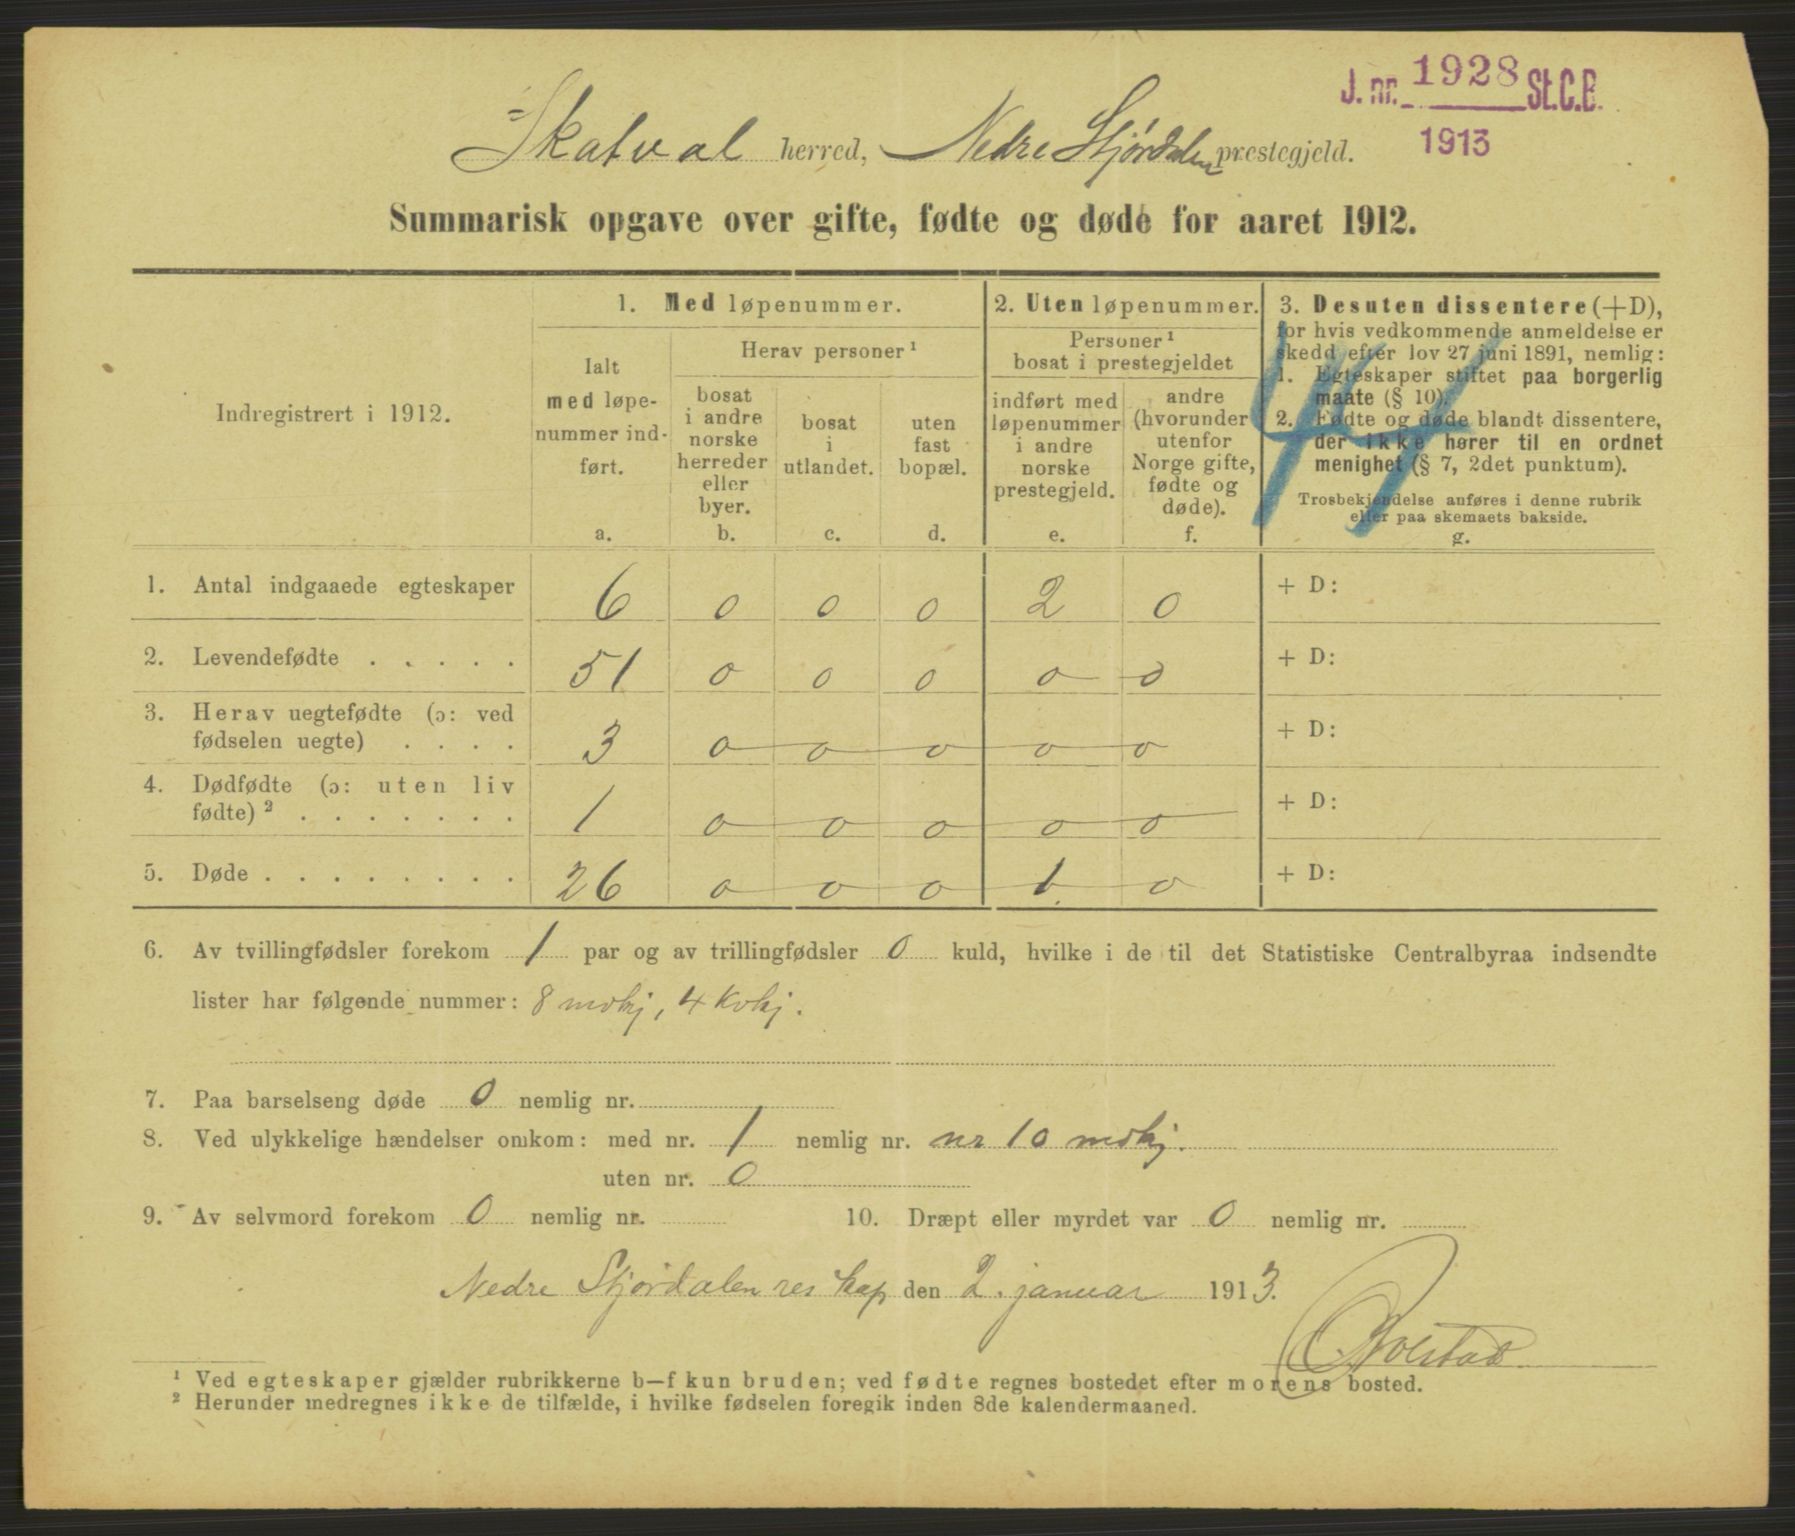 J. nr. 1928 St.C.B.
1913
Skatval herred, Nedre Stjørdalen prestegjeld.
Summarisk opgave over gifte, fødte og døde for aaret 1912.
Indregistrert i 1912.
1. Med løpenummer.
Ialt
med løpe-
nummer ind-
ført.
a.
Herav personer¹
bosat
i andre
norske
herreder
eller
byer.
b.
bosat
i
utlandet.
c.
uten
fast
bopæl.
d.
2. Uten løpenummer.
Personer¹
bosat i prestegjeldet
indført med
løpenummer
i andre
norske
prestegjeld.
e.
andre
(hvorunder
utenfor
Norge gifte,
fødte og
døde).
f.
3. Desuten dissentere (+D),
for hvis vedkommende anmeldelse er
skedd efter lov 27 juni 1891, nemlig:
1. Egteskaper stiftet paa borgerlig
maate (§ 10).
2. Fødte og døde blandt dissentere,
der ikke hører til en ordnet
menighet (§ 7, 2det punktum).
Trosbekjendelse anføres i denne rubrik
eller paa skemaets bakside.
g.
44
1. Antal indgaaede egteskaper 6 0 0 0 2 0 + D:
2. Levendefødte . . . . . 51 0 0 0 0 0 + D:
3. Herav uegtefødte (ɔ: ved
fødselen uegte) . . . . 3 0 0 0 0 0 + D:
4. Dødfødte (ɔ: uten liv
fødte)² . . . . . . . 1 0 0 0 0 0 + D:
5. Døde . . . . . . . . 26 0 0 0 1 0 + D:
6. Av tvillingfødsler forekom 1 par og av trillingfødsler 0 kuld, hvilke i de til det Statistiske Centralbyraa indsendte
lister har følgende nummer: 8 mdkj, 4 Kvkj.
7. Paa barselseng døde 0 nemlig nr.
8. Ved ulykkelige hændelser omkom: med nr. 1 nemlig nr. nr 10 mdkj.
uten nr. 0
9. Av selvmord forekom 0 nemlig nr. 10. Dræpt eller myrdet var 0 nemlig nr.
Nedre Stjørdalen res kap den 2. januar 1913.
¹ Ved egteskaper gjælder rubrikkerne b—f kun bruden; ved fødte regnes bostedet efter morens bosted.
² Herunder medregnes ikke de tilfælde, i hvilke fødselen foregik inden 8de kalendermaaned.